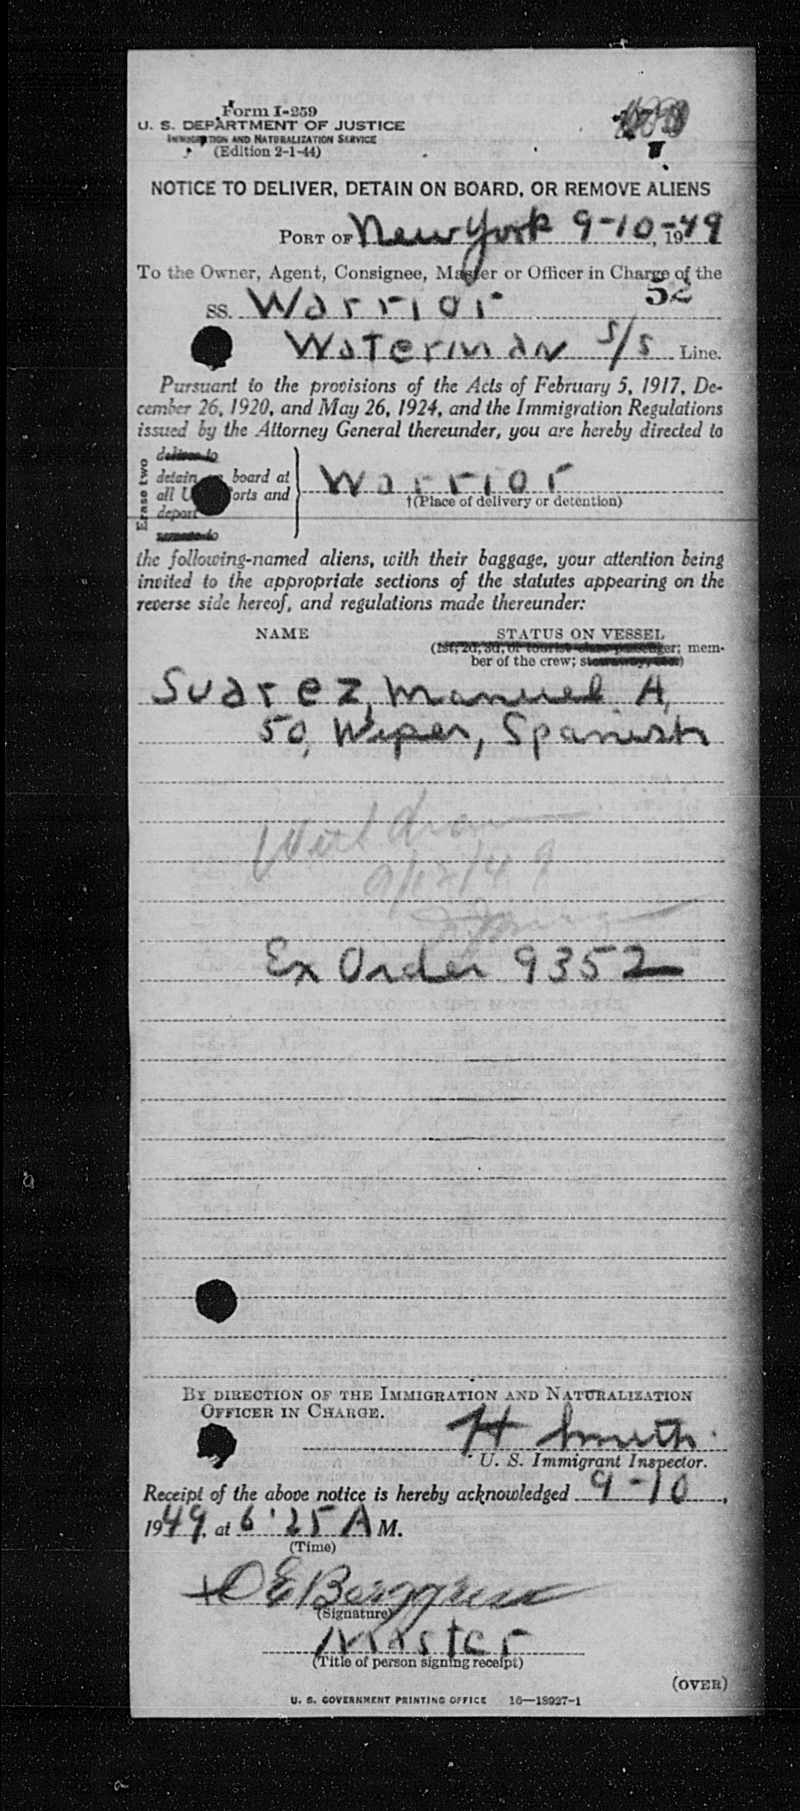 Form I-259
U. S. DEPARTMENT OF JUSTICE
IMMIGRATION AND NATURALIZATION SERVICE
(Edition 2-1-44)
NOTICE TO DELIVER, DETAIN ON BOARD, OR REMOVE ALIENS
PORT OF New York 9-10-, 1949
To the Owner, Agent, Consignee, Master or Officer in Charge of the
52
SS. Warrior
Waterman S/S Line.
Pursuant to the provisions of the Acts of February 5, 1917, De-
cember 26, 1920, and May 26, 1924, and the Immigration Regulations
issued by the Attorney General thereunder, you are hereby directed to
Erase two
deliver to
detain on board at
all U ports and
deport
remove to
Warrior
†(Place of delivery or detention)
the following-named aliens, with their baggage, your attention being
invited to the appropriate sections of the statutes appearing on the
reverse side hereof, and regulations made thereunder:
NAME STATUS ON VESSEL
(1st, 2d, 3d, or tourist class passenger; mem-
ber of the crew; stowaway, etc.)
Suarez, Manuel A,
50, Wiper, Spanish
Withdrawn
9/12/49
Ex Order 9352
BY DIRECTION OF THE IMMIGRATION AND NATURALIZATION
OFFICER IN CHARGE.
H Smith
U. S. Immigrant Inspector.
Receipt of the above notice is hereby acknowledged 9-10,
1949, at 6:25 A M.
(Time)
O E Berggren
(Signature)
Master
(Title of person signing receipt)
(OVER)
U. S. GOVERNMENT PRINTING OFFICE 16—18927-1